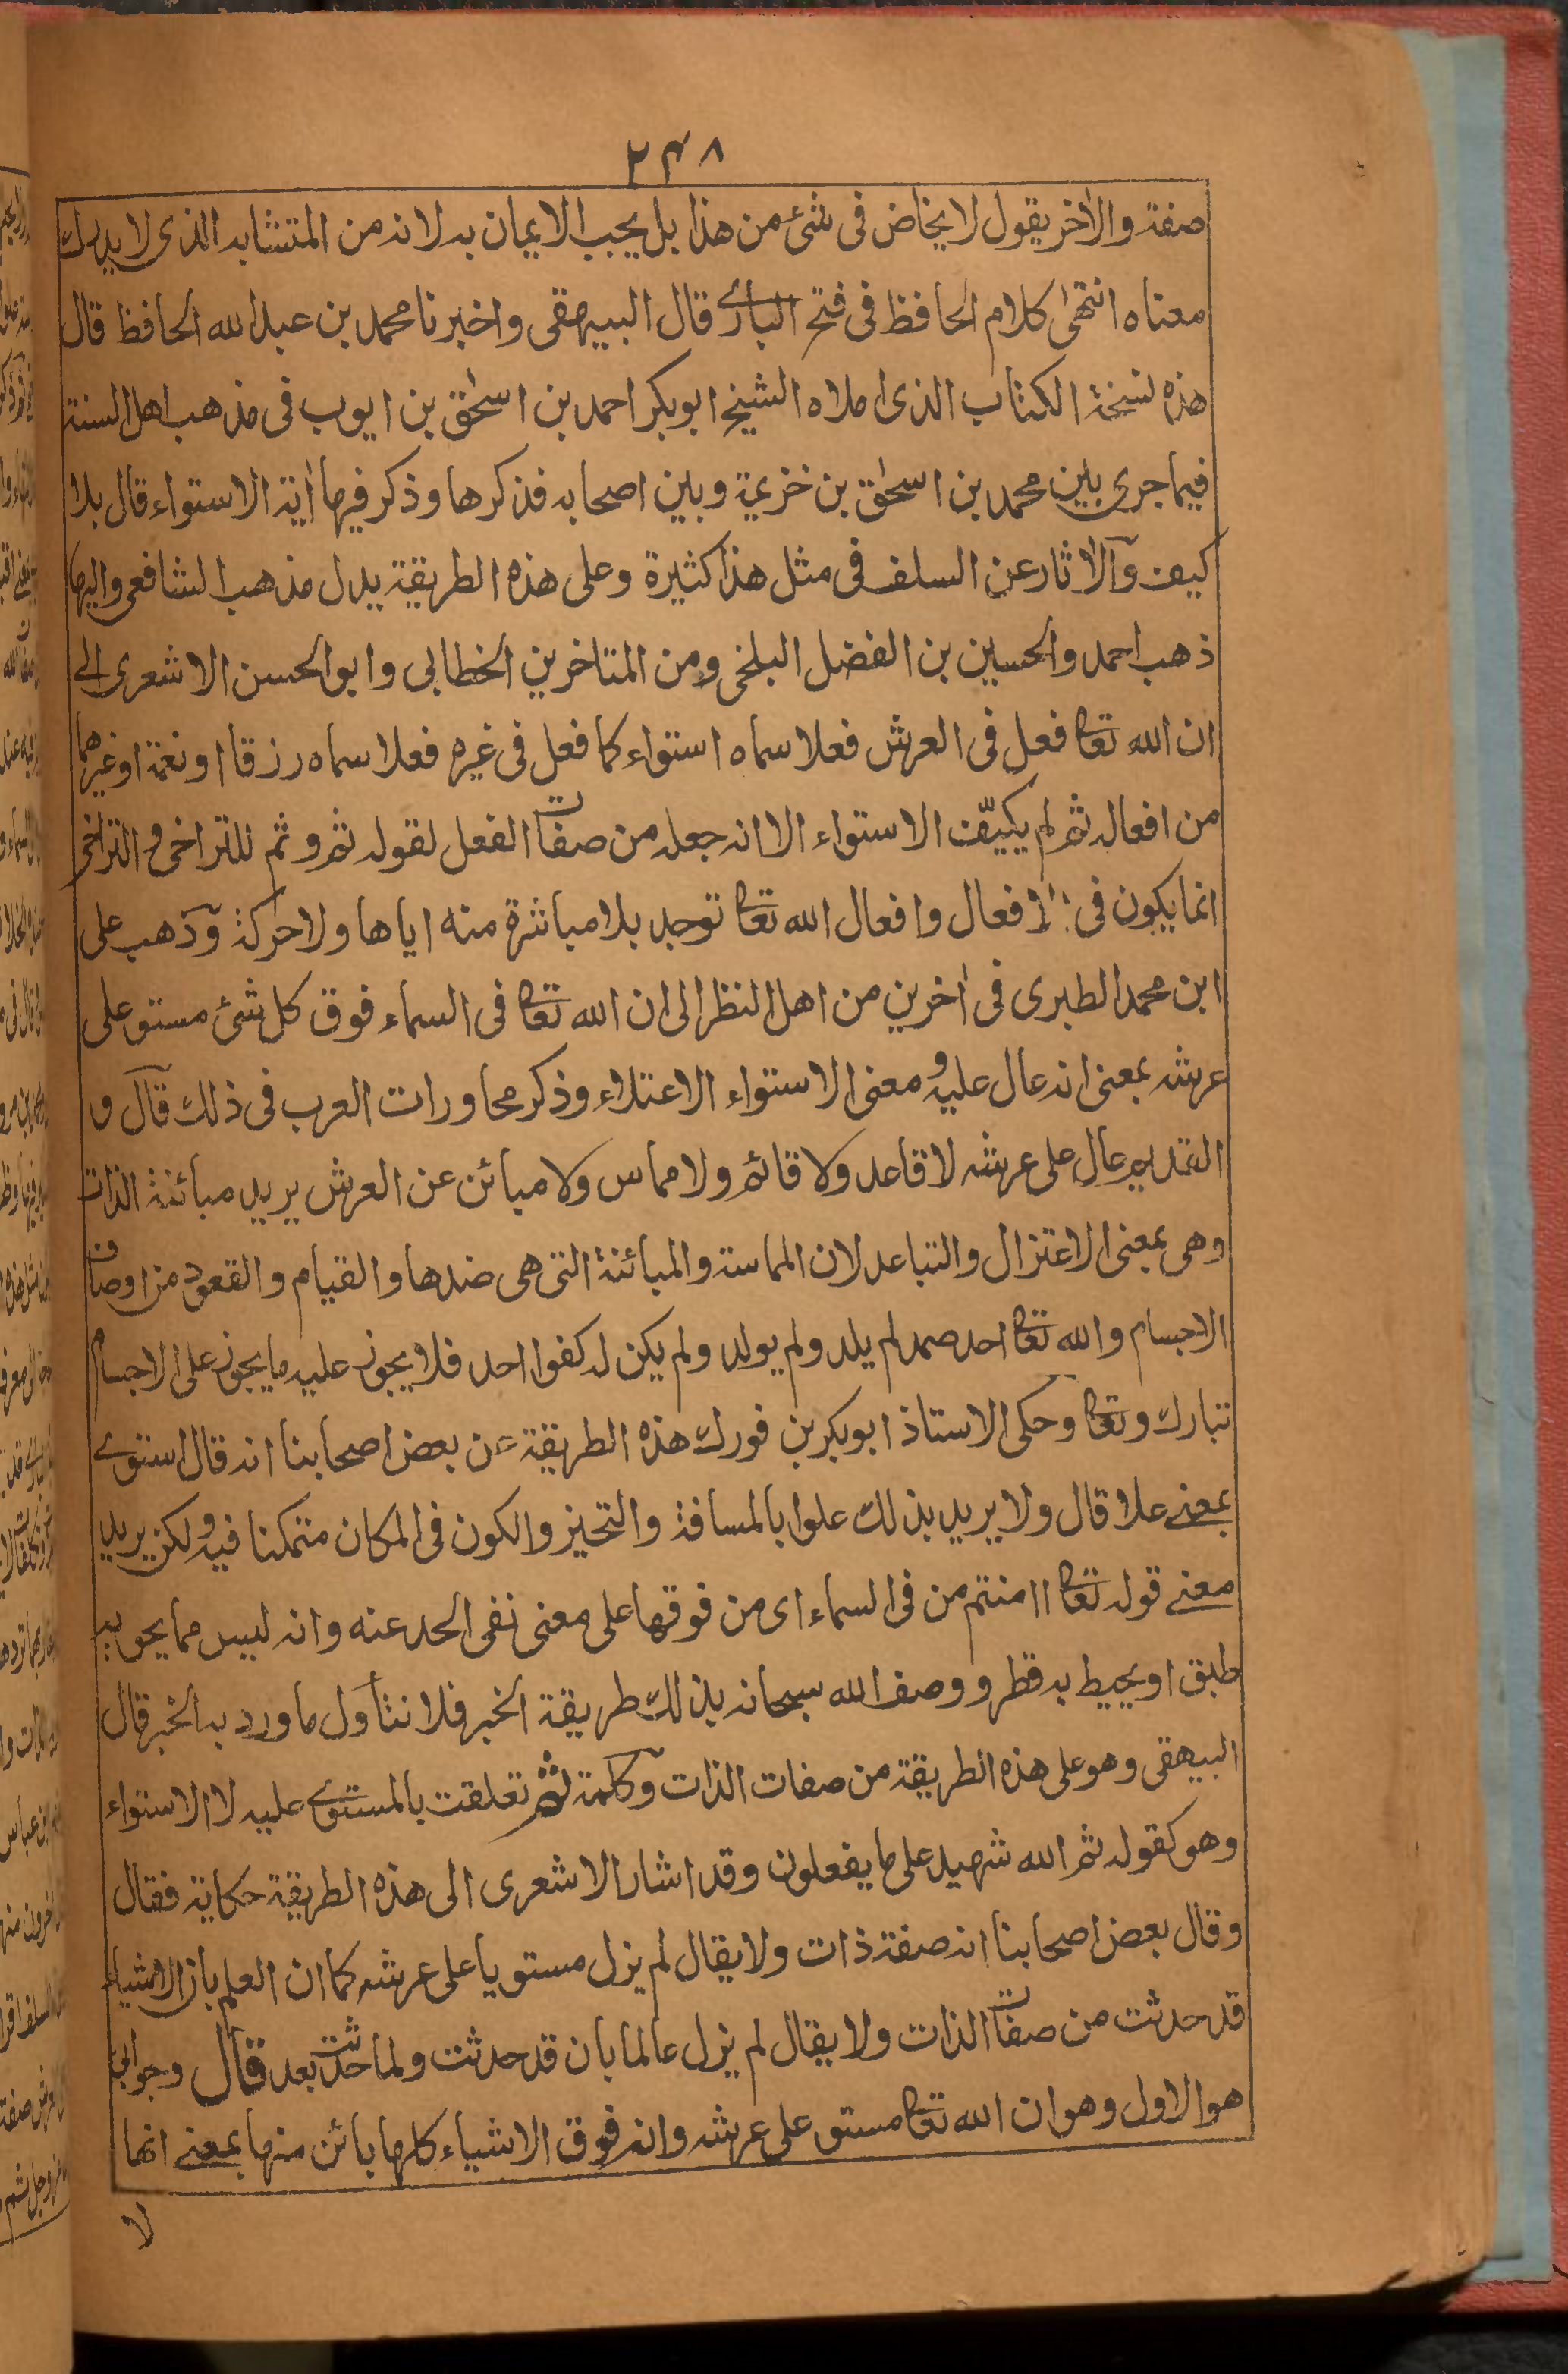 ۲۴۸
صفة والاٰخر يقول لا يخاض فى شئ من هذا بل يجب الايمان به لانه من المتشابه الذى لا يدرك
معناه انتهىٰ كلام الحافظ فى فتح البارے قال البيهقى واخبرنا محمد بن عبد الله الحافظ قال
هذه نسخة الكتاب الذى املاه الشيخ ابو بكر احمد بن اسحٰق بن ايوب فى مذهب اهل السنة
فيما جرى بين محمد بن اسحٰق بن خزيمة وبين اصحابه فذكرها وذكر فيها اٰية الاستواء قال بلا
كيف وآلاٰثار عن السلف فى مثل هذا كثيرة وعلى هذه الطريقة يدل مذهب الشافعى واليها
ذهب احمد والحسين بن الفضل البلخى ومن المتاخرين الخطابى وابو الحسن الاشعرى الے
ان الله تعا فعل فى العرش فعلا سماه استواء كما فعل فى غيره فعلا سماه رزقا او نعمة او غيرهما
من افعاله ثم لم يكيّف الاستواء الا انه جعله من صفات الفعل لقوله ثم وثم للتراخى والتراخى
انما يكون فى الافعال وافعال الله تعا توجد بلا مباشرة منه اياها ولا حركة وذهب على
ابن محمد الطبرى فى اٰخرين من اهل النظر الى ان الله تعا فى السماء فوق كل شئ مستو على
عرشه بمعنى انه عال عليه و معنى الاستواء الاعتلاء وذكر محاورات العرب فى ذلك قال و
القديم عال على عرشه لا قاعد ولا قائم ولا مماس ولا مبائن عن العرش يريد مبائنة الذات
وهى بمعنى الاعتزال والتباعد لان المماسة والمبائنة التى هى ضدها والقيام والقعود من اوصاف
الاجسام والله تعا احد صمد لم يلد ولم يولد ولم يكن له كفوا احد فلا يجوز عليه ما يجوز على الاجسام
تبارك وتعا وحكى الاستاذ ابو بكر بن فورك هذه الطريقة عن بعض اصحابنا انه قال استوے
بمعنے علا قال ولا يريد بذلك علوا بالمسافة والتحيز والكون فى المكان متمكنا فيه ولكن يريد
معنے قوله تعا اامنتم من فى السماء اى من فوقها على معنى نفى الحد عنه وانه ليس مما يحويه
طبق او يحيط به قطر ووصف الله سبحانه بذلك طريقة الخبر فلا نتأول ما ورد به الخبر قال
البيهقى وهو على هذه الطريقة من صفات الذات وكلمة ثم تعلقت بالمستوے عليه لا الاستواء
وهو كقوله ثم الله شهيد على ما يفعلون وقد اشار الاشعرى الى هذه الطريقة حكاية فقال
وقال بعض اصحابنا انه صفة ذات ولا يقال لم يزل مستويا على عرشه كما ان العلم بان الاشياء
قد حدثت من صفات الذات ولا يقال لم يزل عالما بان قد حدثت ولما حدثت بعد قال وجوابى
هو الاول وهو ان الله تعا مستو على عرشه وانه فوق الاشياء كلها بائن منها بمعنے انها
لا